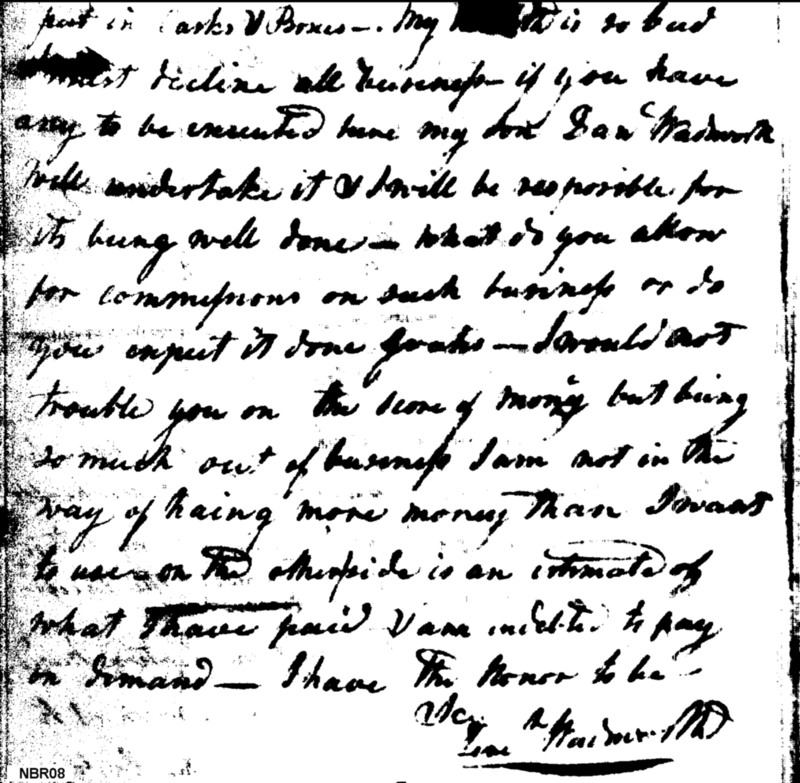 put in Casks & Boxes —. My health is so bad
I must decline all business — if you have
any to be executed here my son Danl Wadsworth
will undertake it & I will be responsible for
its being well done — What do you allow
for commissions on such business or do
you expect it done gratis — I would not
trouble you on the score of money but being
so much out of business I am not in the
way of haing more money than I want
to use — on the otherside is an estimate of
what I have paid & am indebted to pay
on demand — I have the Honor to be —
&c
Jereh Wadsworth
NBR08